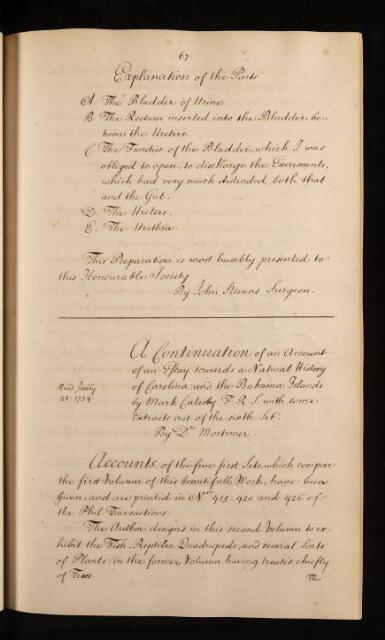 67
Explanation of the Parts
A. The Bladder of Urine.
B. The Rectum inserted into the Bladder be-
tween the Ureters.
C. The Fundus of the Bladder which I was
obliged to open, to discharge the Excrements,
which had very much distended both that
and the Gut.
D. The Ureters.
E. The Urethra.
This Preparation is most humbly presented to
this Honourable Society
By John Stevens Surgeon.
A Continuation of an Account
of an Essay towards a Natural History
Read Janry
of Carolina and the Bahama Islands
23. 1734
by Mark Catesby F. R. S. with some
Extracts out of the sixth Set.
By Dr. Mortimer.
Accounts of the five first Sets, which compose
the first Volumn of this beautifull Work, have been
given, and are printed in Nos. 415. 420 and 426 of
the Phil. Transactions.
The Author designs in this second Volumn to ex-
hibit the Fish, Reptiles, Quadrupeds, and several Sorts
of Plants in the former Volumn having treated chiefly
of Trees.
This